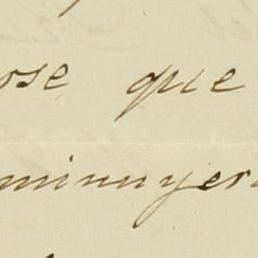 ose que
minuyer